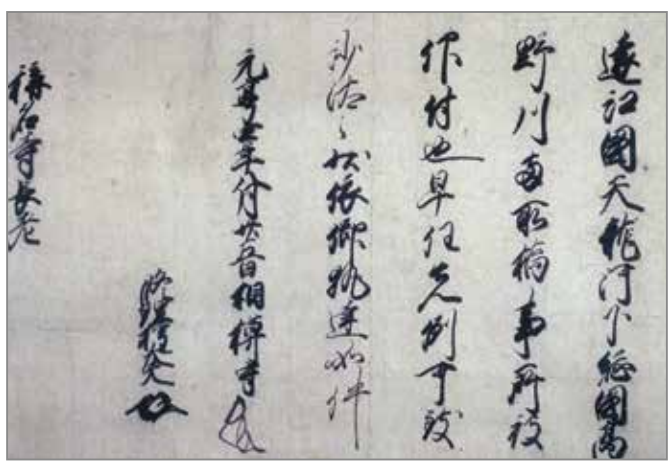 遠江國天龍河下総國高
野川両所橋事所被
仰付也早任先例可致
沙汰之状依仰執達如件
元亨四年八月廿五日相模守
修理権大夫
称名寺長老